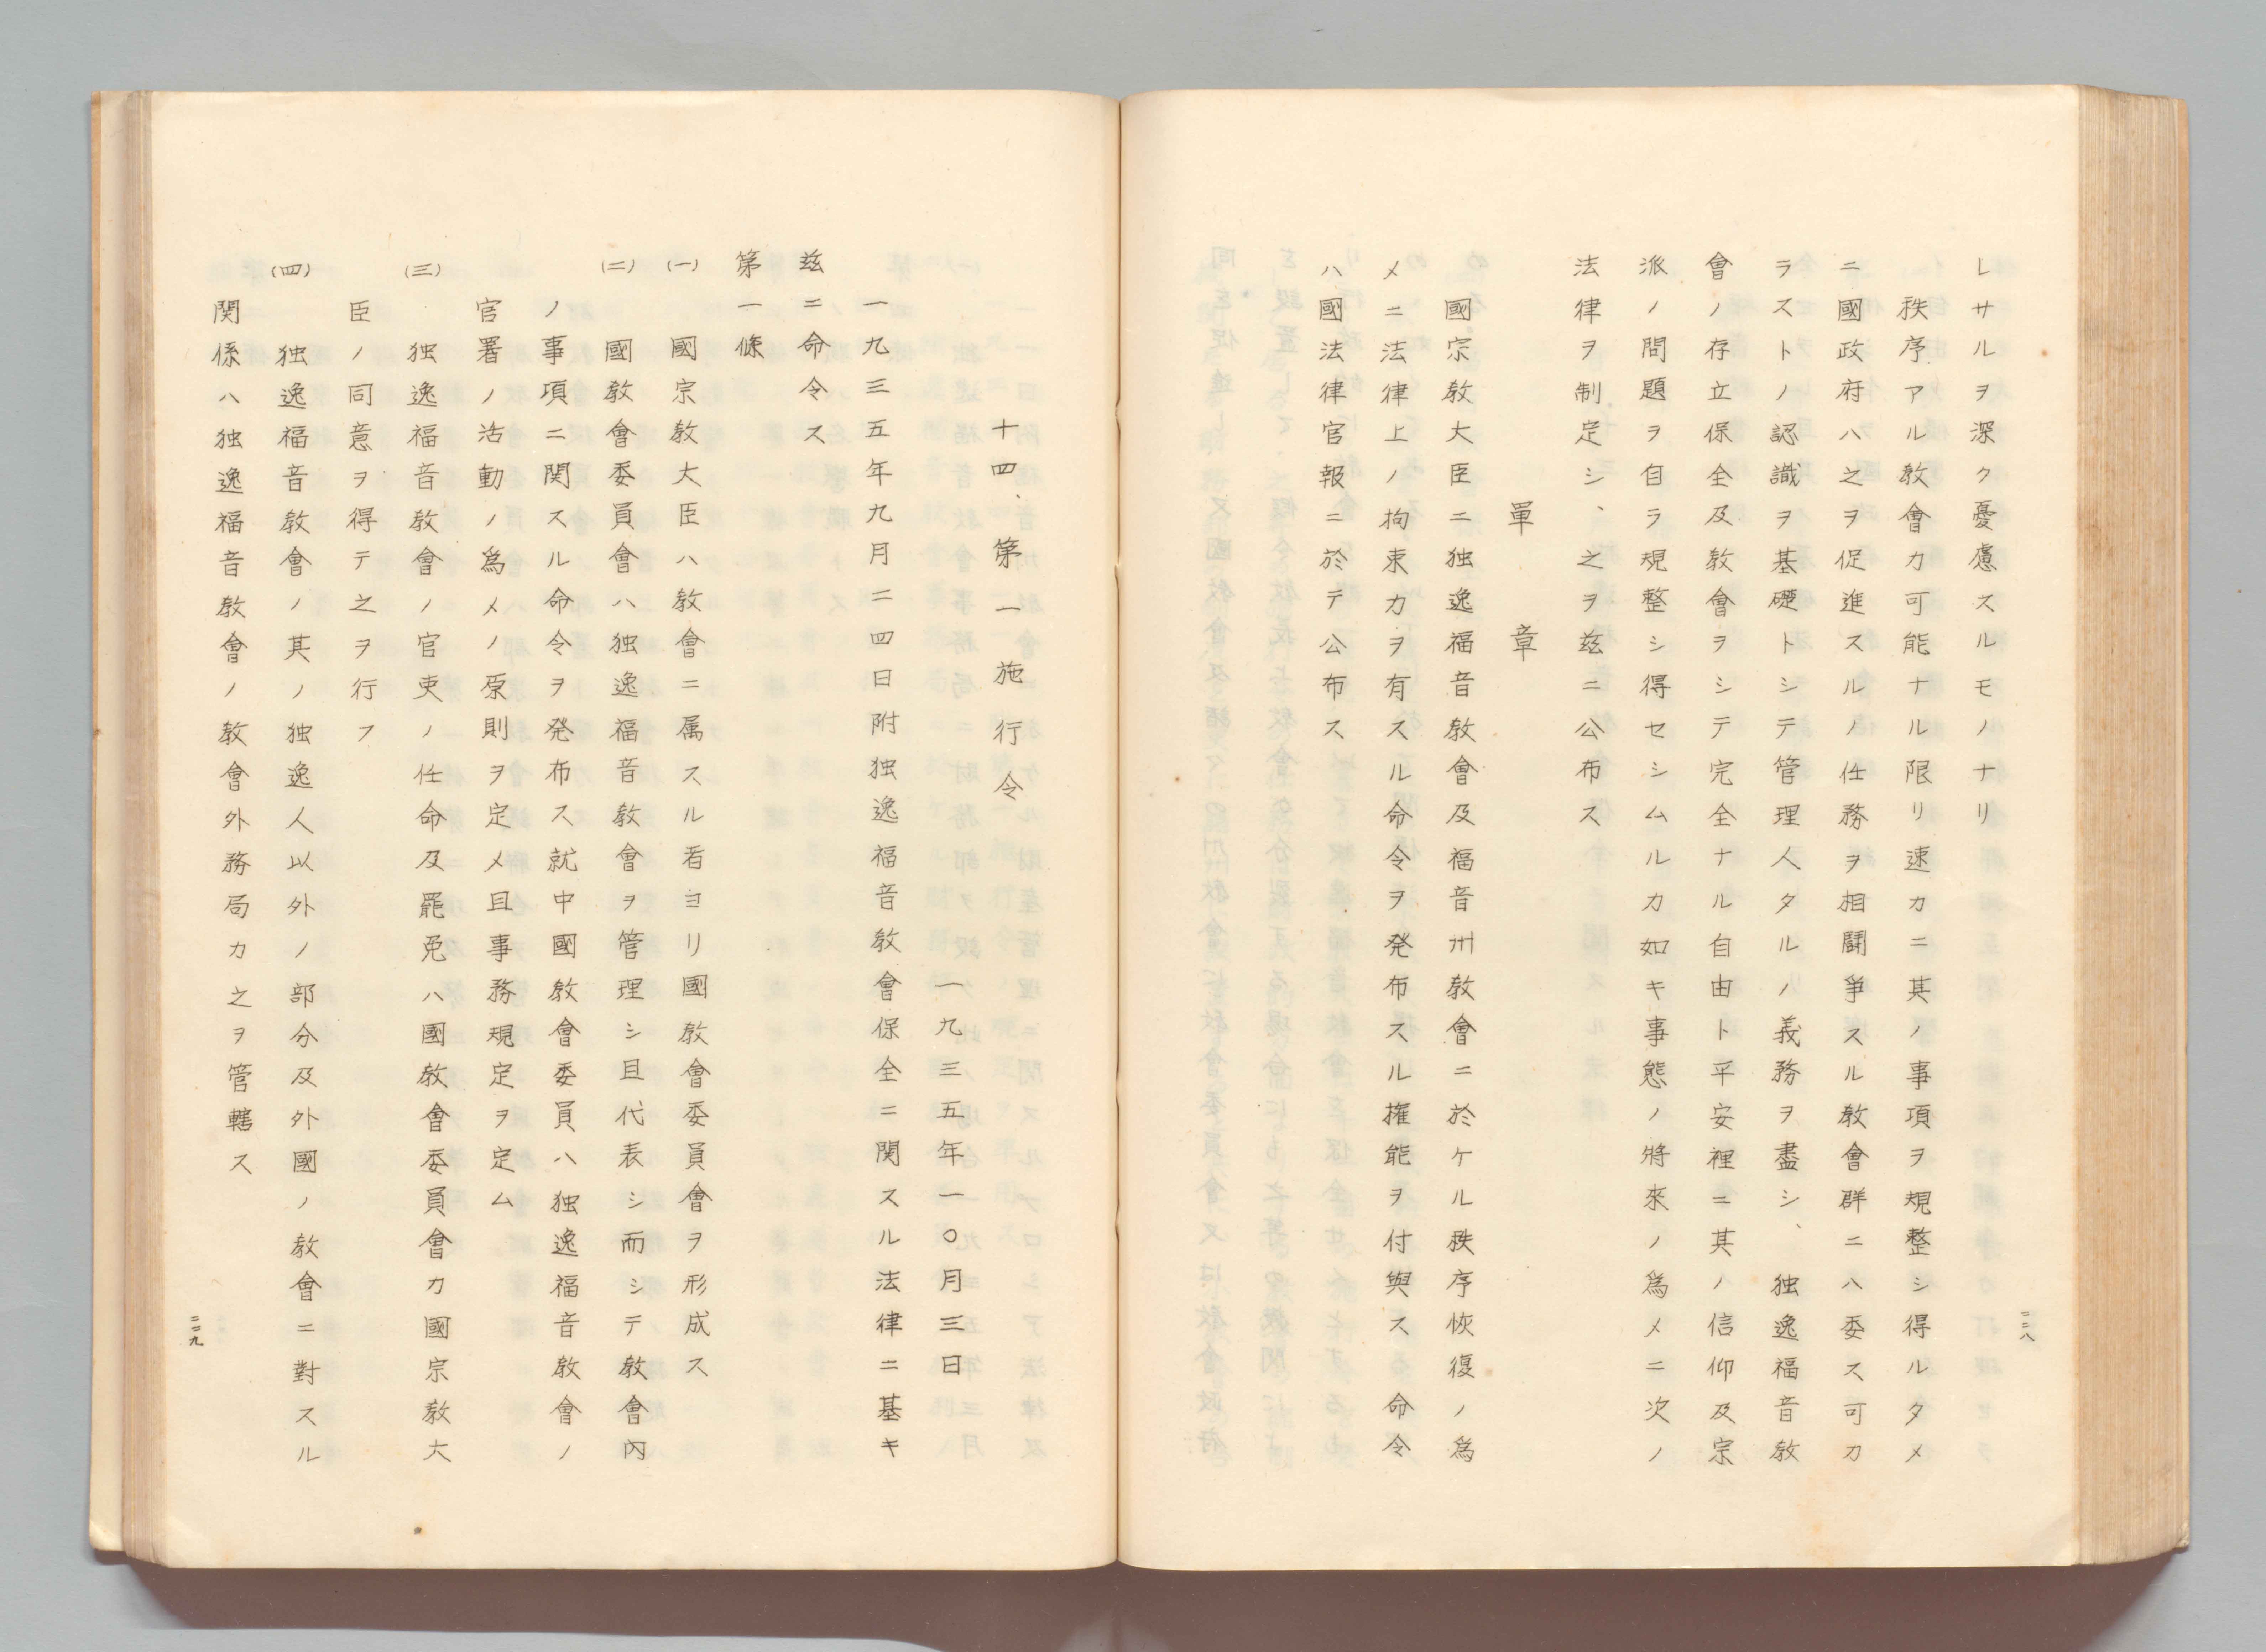 レサルヲ深ク憂慮スルモノナリ
秩序アル教會カ可能ナル限リ速カニ其ノ事項ヲ規整シ得ルタメ
ニ國政府ハ之ヲ促進スルノ任務ヲ相鬪爭スル教會群ニハ委ス可カ
ラストノ認識ヲ基礎トシテ管理人タルノ義務ヲ盡シ、独逸福音教
會ノ存立保全及教會ヲシテ完全ナル自由ト平安裡ニ其ノ信仰及宗
派ノ問題ヲ自ラ規整シ得セシムルカ如キ事態ノ將來ノ爲メニ次ノ
法律ヲ制定シ、之ヲ茲ニ公布ス
單章
國宗教大臣ニ独逸福音教會及福音州教會ニ於ケル秩序恢復ノ爲
メニ法律上ノ拘束力ヲ有スル命令ヲ発布スル權能ヲ付與ス 命令
ハ國法律官報ニ於テ公布ス
二二八
十四、第一施行令
一九三五年一〇月三日
一九三五年九月二四日附独逸福音教會保全ニ関スル法律ニ基キ
茲ニ命令ス
第一條
(一) 國宗教大臣ハ教會ニ属スル者ヨリ國教會委員會ヲ形成ス
(二) 國教會委員會ハ独逸福音教會ヲ管理シ且代表シ而シテ教會内
ノ事項ニ関スル命令ヲ発布ス就中國教會委員ハ独逸福音教會ノ
官署ノ活動ノ爲メノ原則ヲ定メ且事務規定ヲ定ム
(三) 独逸福音教會ノ官吏ノ任命及罷免ハ國教會委員會カ國宗教大
臣ノ同意ヲ得テ之ヲ行フ
(四) 独逸福音教會ノ其ノ独逸人以外ノ部分及外國ノ教會ニ對スル
関係ハ独逸福音教會ノ教會外務局カ之ヲ管轄ス
二二九